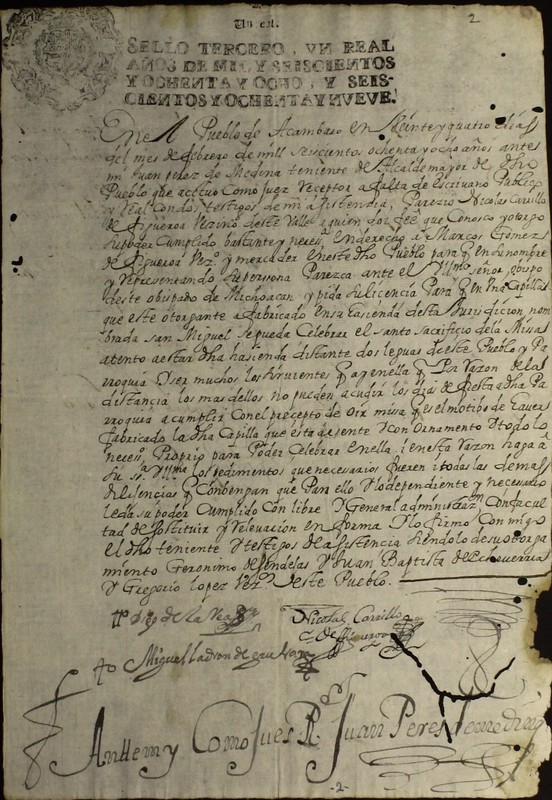 2
Un rl.
SELLO TERCERO, VN REAL
AÑOS DE MIL Y SEISCIENTOS
Y OCHENTA Y OCHO, Y SEIS-
CIENTOS Y OCHENTA Y NVEVE.
En el Pueblo de Acambaro en Veinte y quatro dias
del mes de febrero de mill seiscientos ochenta y ocho años ante
mi Juan perez de Medina teniente de Alcalde mayor de dho
Pueblo que actuo Como Juez Receptor a falta de Escrivano Publico
y Real Con dos testigos de mi asistencia, Parezio Nicolas Carrillo
de figueroa Vezino deste Valle a quien doi fee que Conosco y otorgo
su poder Cumplido bastante y neces.o en derecho a Marcos Gomez
de figueroa Vez.o y mercader en este dho Pueblo para q en su nombre
y Representando su persona Parezca ante el Yllmo señor obispo
deste obispado de Michoacan y pida su licencia Para q en Vna Capilla
que este otorgante a fabricado en su hacienda desta Jurisdicion nom
brada san Miguel se pueda Celebrar el santo sacrificio de la Missa
atento a estar dha hasienda distante dos leguas deste Pueblo y Pa
rroquia y ser muchos los sirvientes q ay en ella y q Por Razon de la
distancia los mas dellos no pueden acudir los dias de fiesta a dha Pa
rroquia a cumplir Con el precepto de oir misa q es el motibo de haver
fabricado la dha Capilla que esta desente y con ornamento y todo lo
neces.o Proprio para Poder Celebrar en ella i en esta Razon haga a
su s.a Yllma los pedimentos que necesarios fueren i todas las demas
dilisencias q Conbengan que Para ello y lo dependiente y necesario
le da su poder Cumplido Con libre y General administraz.on Con facul
tad de sostituir y Relevacion en forma y lo firmo Con migo
el dho teniente y testigos de asistencia siendolo de su otorga
miento Geronimo de Pendelas y Juan Baptista de Echeverria
y Gregorio Lopez Vez.os deste Pueblo.
Nicolas Carrillo
de figueroa
to Miguel ladron de guevara
Ante my Como Jues R.or Juan Peres de medina
-2-